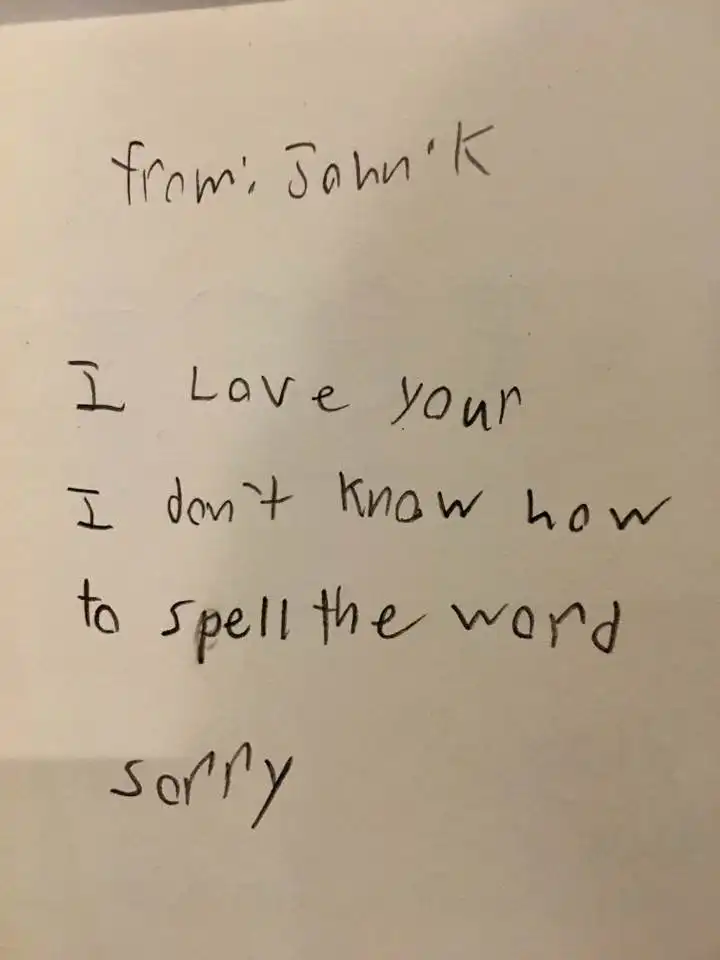 from: John'K
I Love your
I don't know how
to spell the word
sorry